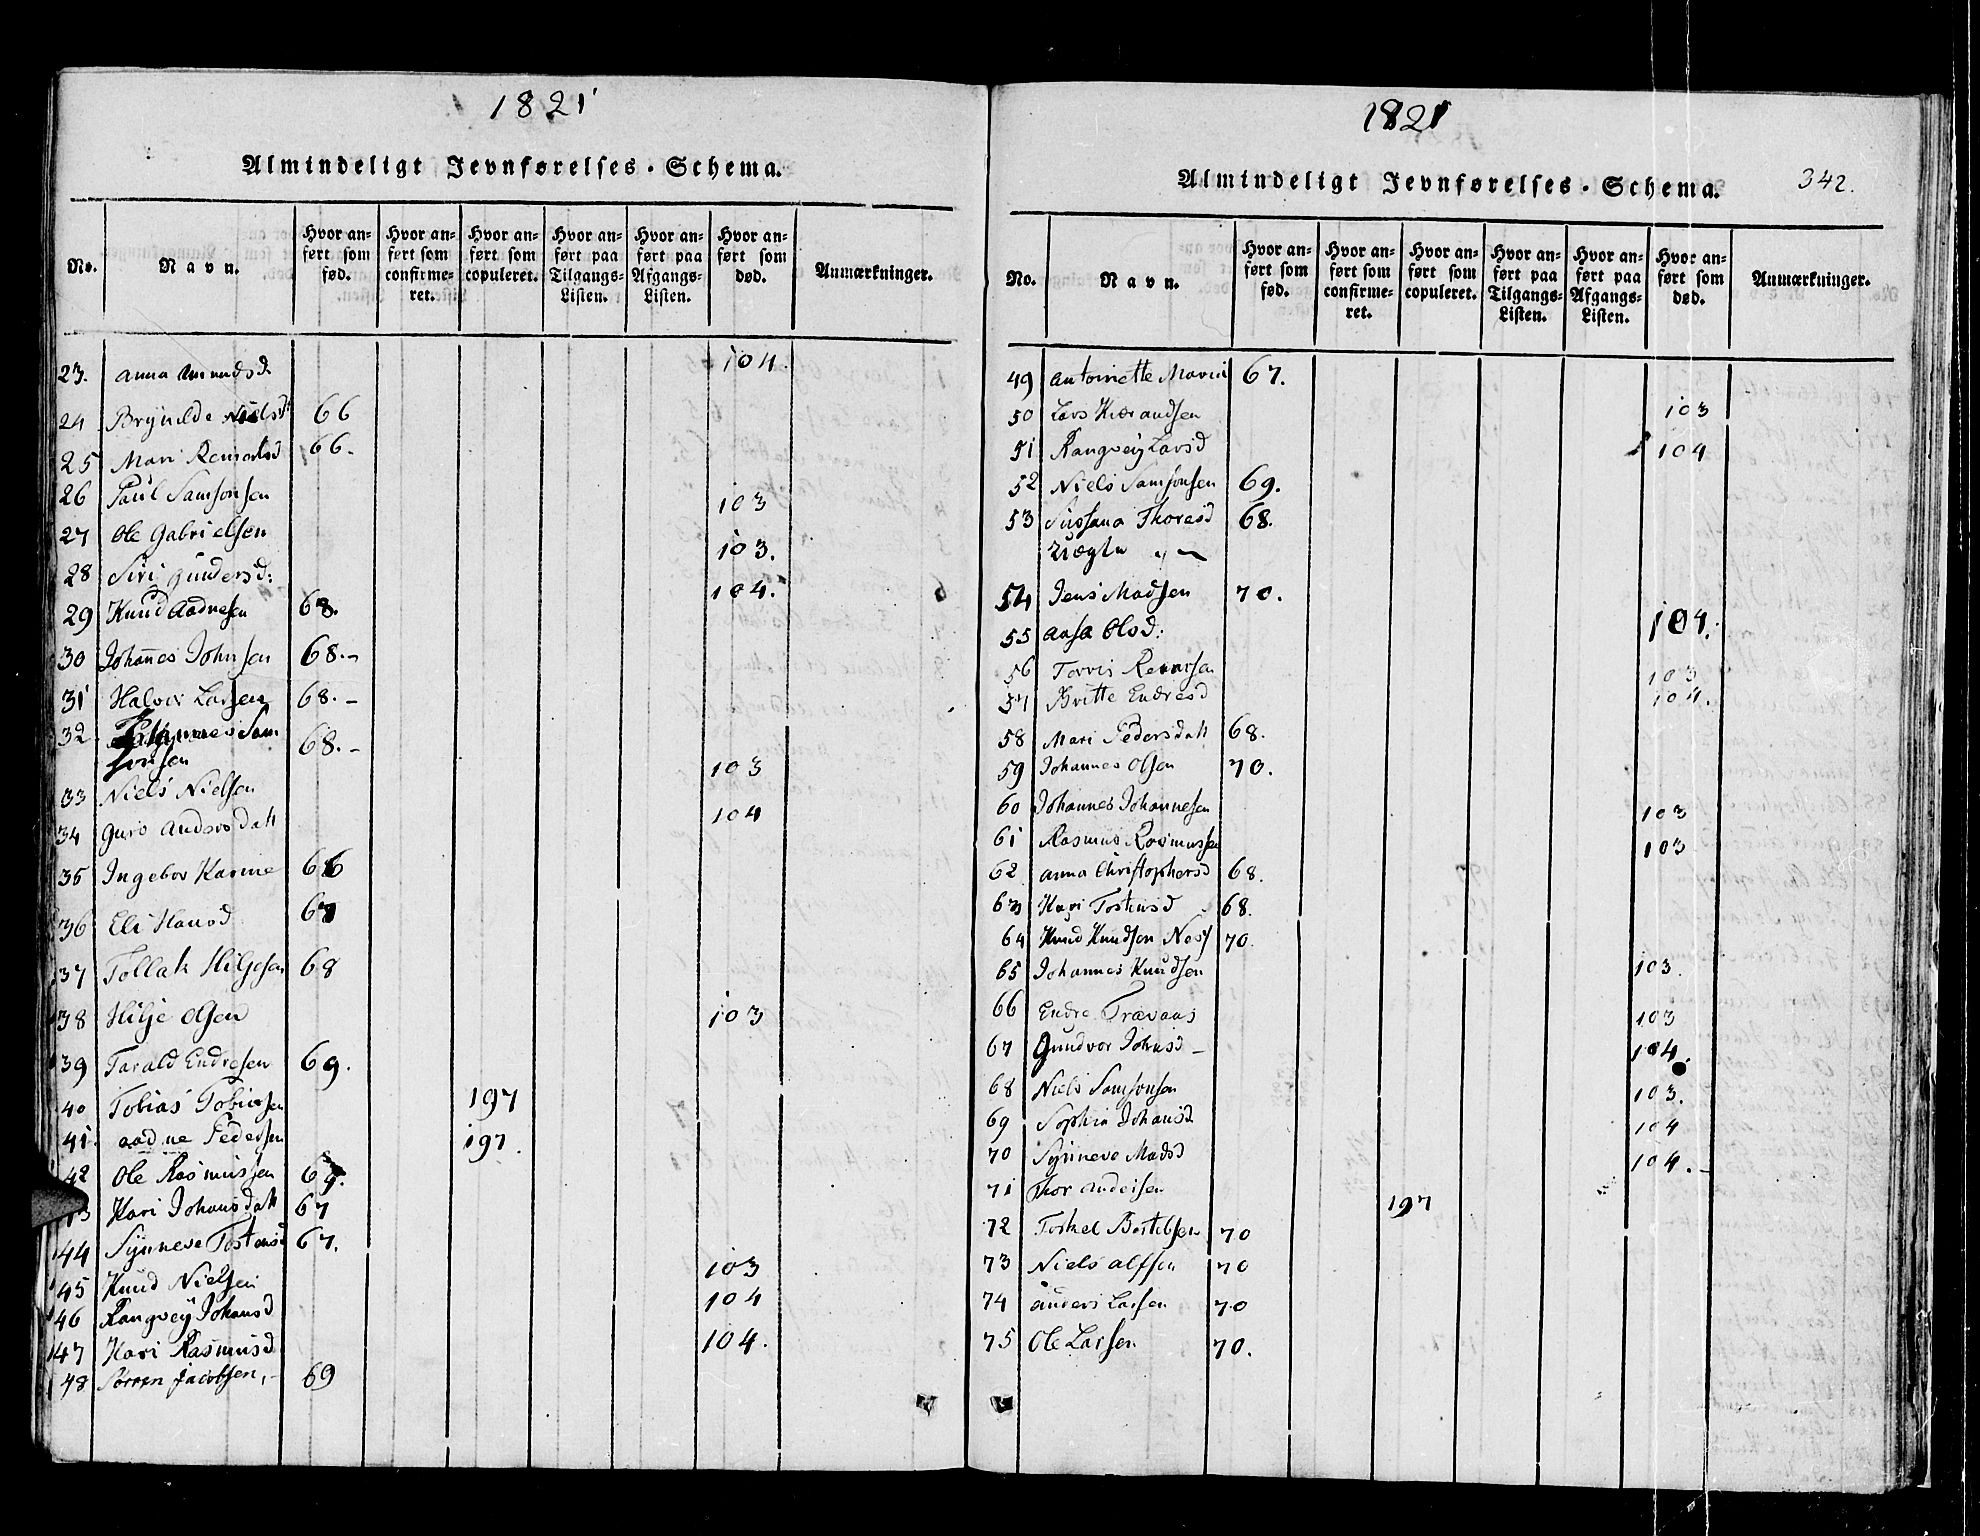 1821
Almindeligt Jevnførelses-Schema.
No.
Navn.
Hvor an-
ført som
fød.
Hvor an-
ført som
confirme-
ret.
Hvor an-
ført som
copuleret.
Hvor an-
ført paa
Tilgangs-
Listen.
Hvor an-
ført paa
Afgangs-
Listen.
Hvor an-
ført som
død.
Anmærkninger.
23. Anna Amundsd. 104.
24 Brynilde Nielsd 66
25 Mari 66.
26 Paul Samsonsen 103
27 Ole Gabrielsen 103.
28 Siri Gundersd: 104.
29 Knud Aadnesen 68.
30 Johannes Johnsen 68.-
31 Halvor Larsen 68.-
32 Johannes Sam
sonsen 68.-
33 Niels Nielsen 103
34 Guro Andersdatt 104
35 Ingebor Karine 66
36 Eli Hansd 67
37 Tollak Hiljesen 68
38 Hilje Olsen 103
39 Tarald Endresen 69.
40 Tobias Tobiasen 197
41 Aadne Pedersen 197.
42 Ole Rasmussen
43 Kari Johansdatt 67
44 Synneve Tostensd 67.
45 Knud Nielsen 103
46 Rangvey Johansd 104
47 Kari Rasmusd 104.
48 Sørren Jacobsen,- 69
1821
Almindeligt Jevnførelses-Schema. 342.
No.
Navn.
Hvor an-
ført som
fød.
Hvor an-
ført som
confirme-
ret.
Hvor an-
ført som
copuleret.
Hvor an-
ført paa
Tilgangs-
Listen.
Hvor an-
ført paa
Afgangs-
Listen.
Hvor an-
ført som
død.
Anmærkninger.
49 Antonette Maria 67.
50 Lars 103
51 Rangvey Larsd 104
52 Niels Samsonsen 69.
53 Sussana Thoresd 68.
Uægte
54 Jens Madsen 70.
55 Aasa Olsd: 104.
56 103
57 Britte Endresd 104.
58 Mari Pedersdatt 68.
59 Johannes Olsen 70.
60 Johannes Johannesen 103
61 Rasmus Rasmussen 103
62 Anna Christophersd 68.
63 Kari Tostensd 68.
64 Knud Knudsen Nes 70.
65 Johannes Knudsen 103.
66 Endre Trævaas 103
67 Gundvor Johnsd - 104.
68 Niels Samsonsen 103.
69 Sophia Johansd 104
70 Synneve Madsd 104.-
71 Thor Andersen 197
72 Torkel Bertelsen 70
73 Niels Alfsen 70
74 Anders Larsen 70
75 Ole Larsen 70.